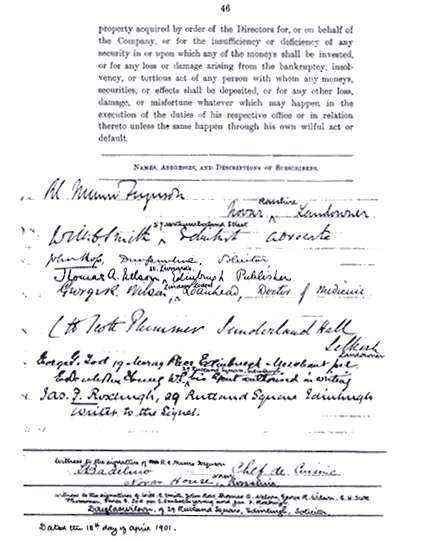 46
property acquired by order of the Directors for, or on behalf of
the Company, or for the insufficiency or deficiency of any
security in or upon which any of the moneys shall be invested,
or for any loss or damage arising from the bankruptcy, insol-
vency, or tortious act of any person with whom any moneys,
securities, or effects shall be deposited, or for any other loss,
damage, or misfortune whatever which may happen in the
execution of the duties of his respective office or in relation
thereto unless the same happen through his own wilful act or
default.
NAMES, ADDRESSES, AND DESCRIPTIONS OF SUBSCRIBERS.
Munro Ferguson
Ross-shire
Novar Landowner
57 Northumberland Street
Smith Edinburgh advocate
John Ross, Dunfermline, Solicitor
St. Leonards
Thomas A. Nelson Edinburgh Publisher
George R. Wilson, Doctor of Medicine
Scott Plummer Sunderland Hall
Selkirk
Landowner
George G. Tod 19 Moray Place Edinburgh Merchant per
29 Rutland Square, Edinburgh
Young W.S. his agent authorised in writing
Jas. F. Roxburgh, 29 Rutland Square Edinburgh
Writer to the Signet.
Witness to the signature of R. C. Munro Ferguson
Chef de Cuisine
Novar House, Ross-shire
Witness to the signatures of Will. C. Smith, John Ross, Thomas A. Nelson, George R. Wilson, C. H. Scott
Plummer, George G. Tod per and Jas. F. Roxburgh.
of 29 Rutland Square, Edinburgh, Solicitor
Dated the 18th day of April 1901.